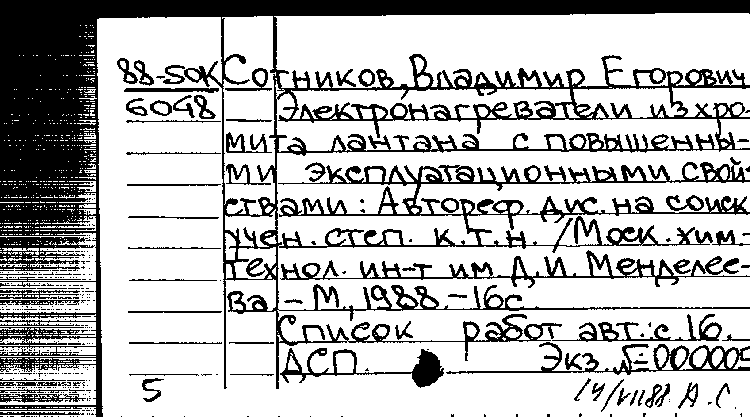 88-SOK Сотников, Владимир Егорович
6048 Электронагреватели из хро-
мита лантана с повышенны-
ми эксплуатационными свой-
ствами: Автореф. дис. на соиск.
учен. степ. к.т.н. / Моск. хим.-
технол. ин-т им. Д.И. Менделее-
ва. – М., 1988. – 16с.
Список работ авт.: с. 16.
ДСП. Экз. № 000005
5 14/VII88 А.С.